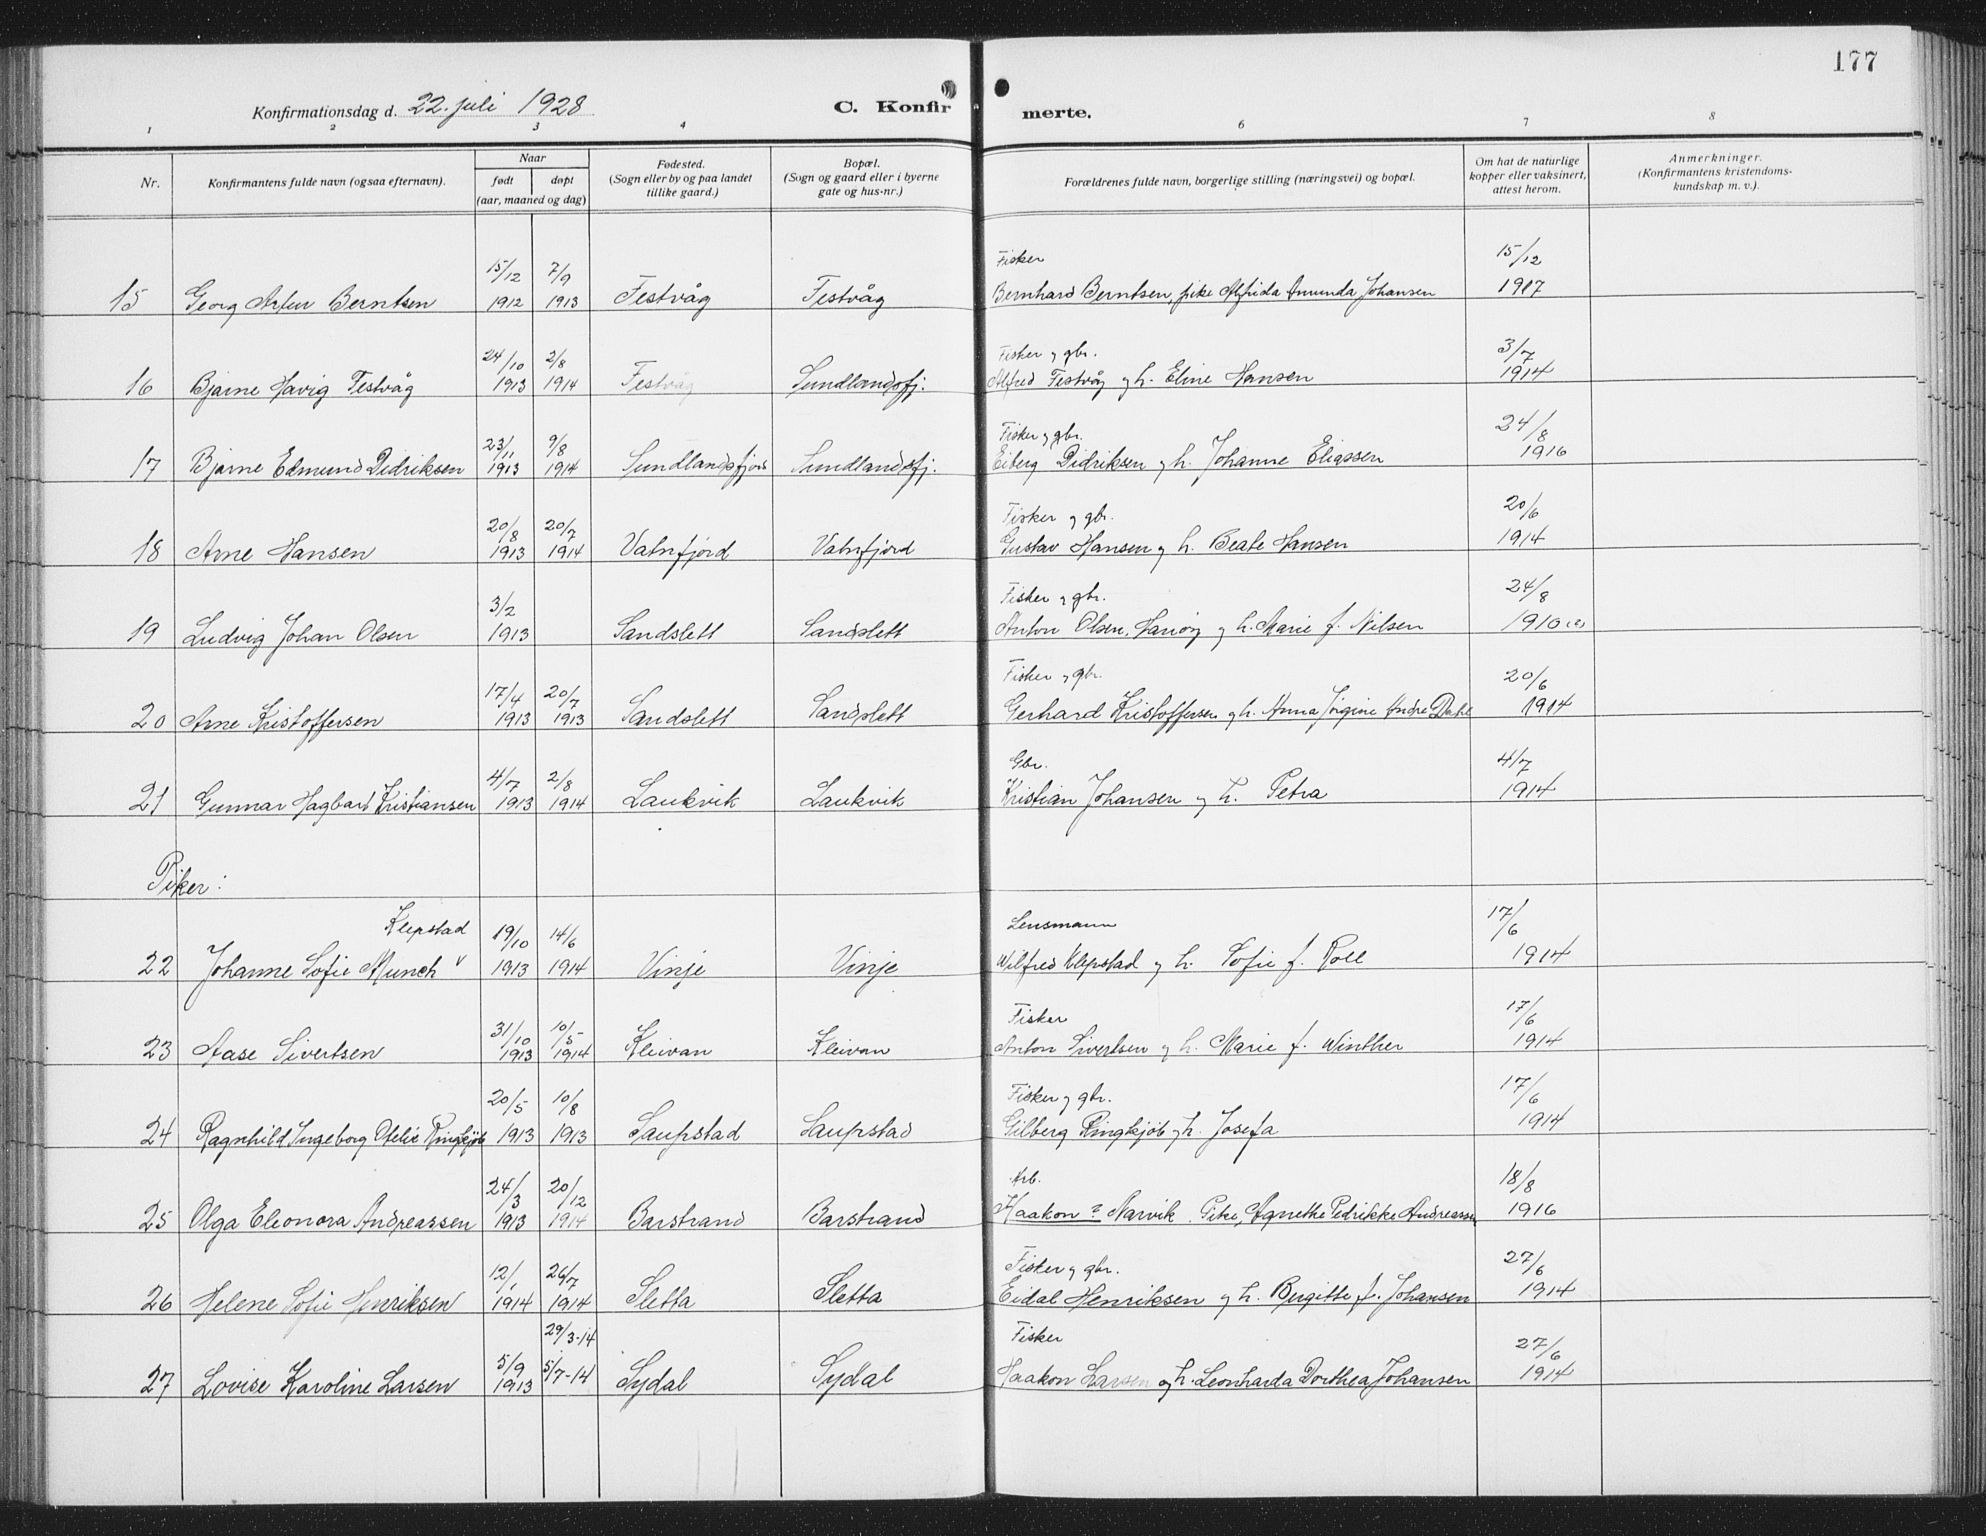 177
Konfirmationsdag d. 22. juli 1928
C. Konfirmerte.
1 2 3 4 6 7 8
Nr.
Konfirmantens fulde navn (ogsaa efternavn).
Naar
født
døpt
(aar, maaned og dag)
Fødested.
(Sogn eller by og paa landet
tillike gaard.)
Bopæl.
(Sogn og gaard eller i byerne
gate og hus-nr.)
Forældrenes fulde navn, borgerlige stilling (næringsvei) og bopæl.
Om hat de naturlige
kopper eller vaksinert,
attest herom.
Anmerkninger.
(Konfirmantens kristendoms-
kundskap m. v.).
15/12 7/9 Fisker 15/12
15 Georg Artur Berntsen 1912 1913 Festvåg Festvåg Bernhard Berntsen, pike Alfrida Amunda Johansen 1917
24/10 2/8 Fisker, gbr. 3/7
16 Bjarne Havig Festvåg 1913 1914 Festvåg Sundlandsfj. Alfred Festvåg og h. Eline Hansen 1914
23/11 9/8 Fisker, gbr. 24/8
17 Bjarne Edmund Didriksen 1913 1914 Sundlandsfjord Sundlandsfj. Eiberg Didriksen og h. Johanne Eliassen 1916
20/8 20/7 Fisker, gbr. 20/6
18 Arne Hansen 1913 1914 Vatnfjord Vatnfjord Gustav Hansen og h. Beate Hansen 1914
3/2 Fisker, gbr. 24/8
19 Ludvig Johan Olsen 1913 Sandslett Sandslett Anton Olsen, Hanøy og h. Marie f. Nilsen 1910 (?)
17/4 20/7 Fisker, gbr. 20/6
20 Arne Kristoffersen 1913 1913 Sandslett Sandslett Gerhard Kristoffersen og h. Anna Jörgine Andre Dahl 1914
4/7 2/8 Gbr. 4/7
21 Gunnar Hagbart Kristiansen 1913 1914 Laukvik Laukvik Kristian Johansen og h. Petra 1914
Piker:
Klepstad 19/10 14/6 Lensmann 17/6
22 Johanne Sofie Munch v 1913 1914 Vinje Vinje Wilfred Klepstad og h. Sofie f. Roll 1914
31/10 10/5 Fisker 17/6
23 Aase Sivertsen 1913 1914 Kleivan Kleivan Anton Sivertsen og h. Marie f. Winther 1914
20/5 10/8 Fisker, gbr. 17/6
24 Ragnhild Ingeborg Ofelie Ringkjøb 1913 1913 Saupstad Saupstad Gilberg Ringkjöb og h. Josefa 1914
24/3 20/12 Arb. 18/8
25 Olga Eleonora Andreassen 1913 1914 Barstrand Barstrand Haakon ? Narvik. Pike, Agnethe Pedrikke Andreassen 1916
12/1 26/7 Fisker, gbr. 27/6
26 Helene Sofie Henriksen 1914 1914 Sletta Sletta Eidal Henriksen og h. Birgitte f. Johansen 1914
5/9 29/3-14 Fisker 27/6
27 Lovise Karoline Larsen 1913 5/7-14 Sydal Sydal Haakon Larsen og h. Leonharda Dorthea Johansen 1914